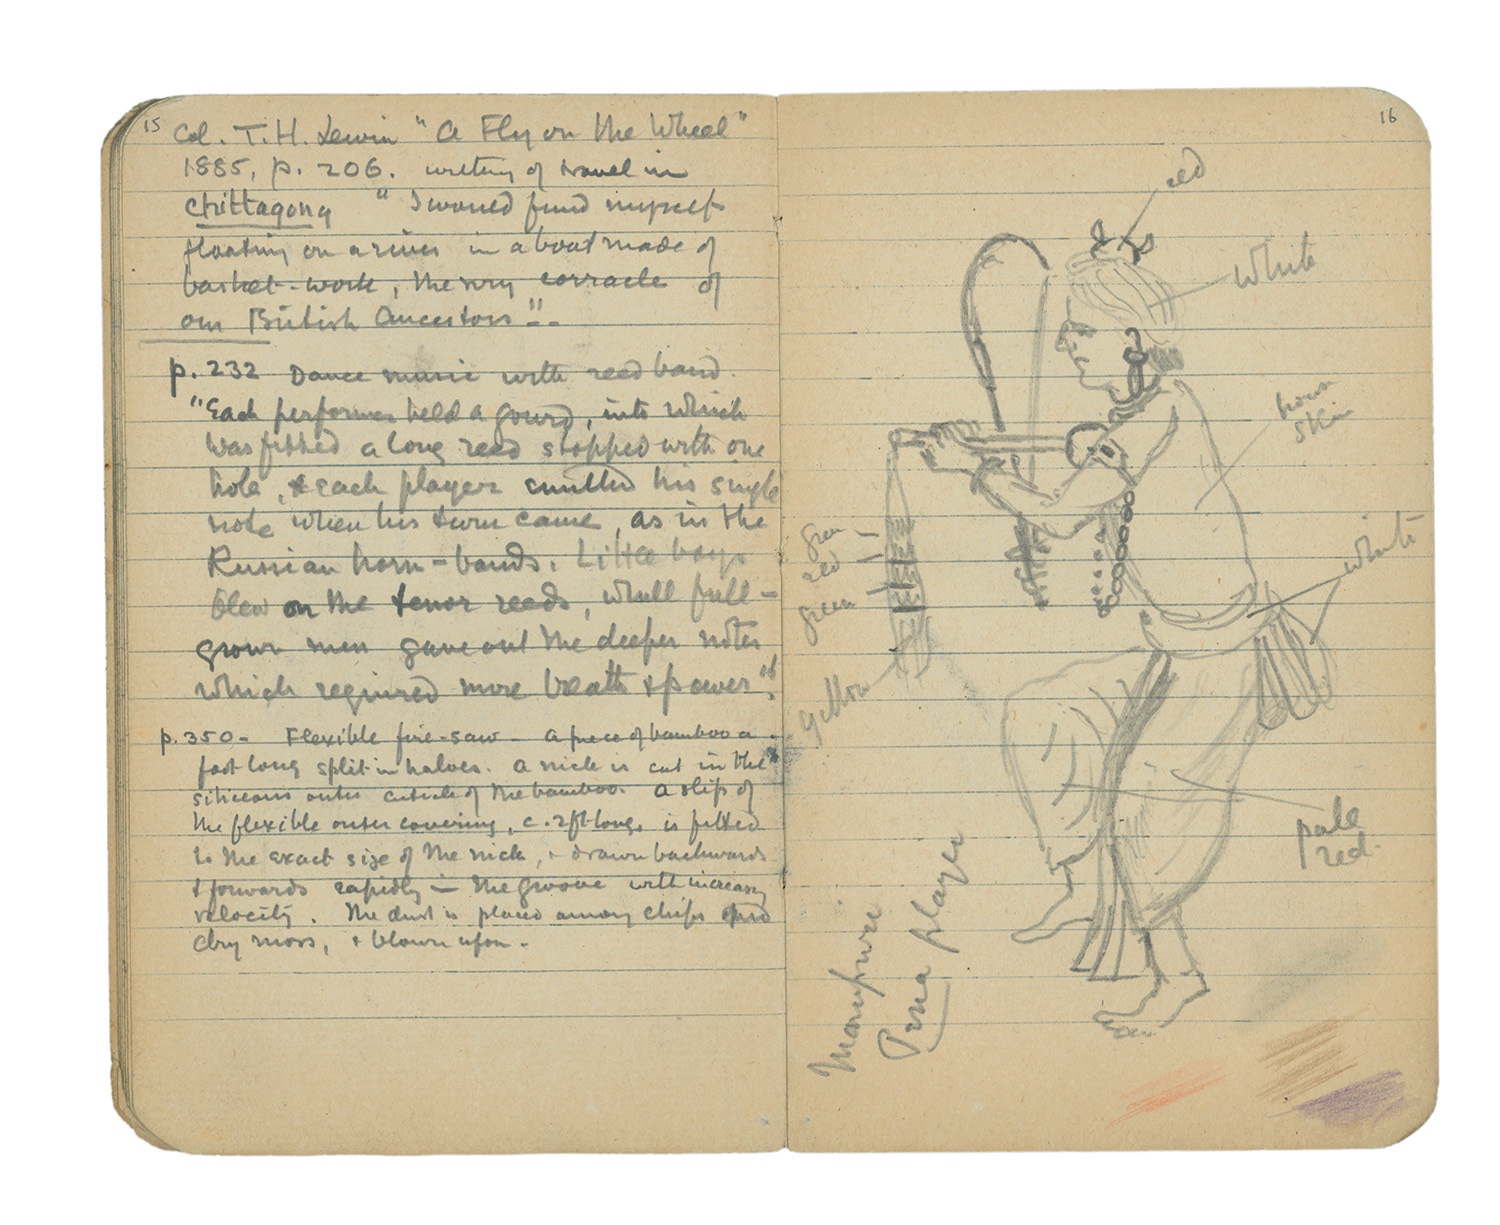 15
Col. T.H. Lewin "A Fly on the Wheel"
1885, p. 206. writing of travel in
Chittagong "I would find myself
floating on a river in a boat made of
basket-work, the very corracle of
our British Ancestors".
p. 232 Dance music with reed band.
"Each performer held a gourd, into which
was fitted a long reed stopped with one
hole, & each player emitted his single
note when his turn came, as in the
Russian horn-bands. Little boys
blew on the tenor reeds, whilst full-
grown men gave out the deeper notes
which required more breath & power".
p. 350 - Flexible fire-saw - A piece of bamboo a
foot long split in halves. A nick is cut in the
siliceous outer cuticle of the bamboo. A slip of
the flexible outer covering, c. 2ft long, is fitted
to the exact size of the nick, & drawn backwards
& forwards rapidly in the groove with increasing
velocity. The dust is placed among chips and
dry moss, & blown upon.
16
red
white
brown
skin
white
green
red
green
yellow
pale
red
Manipuri
Pena player